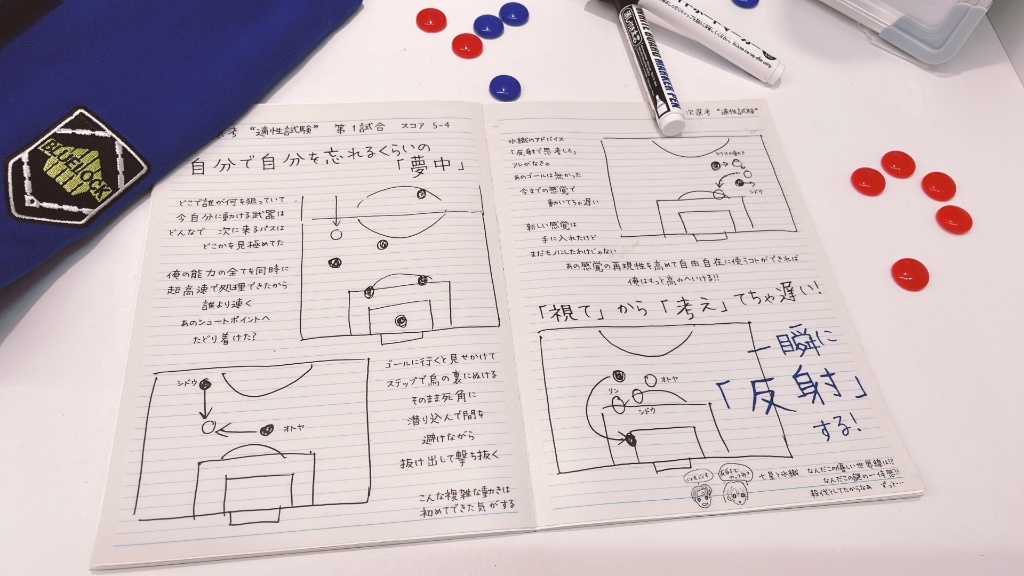 BLUELOCK
選考 "適性試験" 第1試合 スコア 5-4
自分で自分を忘れるくらいの
「夢中」
どこで誰が何を狙っていて
今自分に動ける武器は
どんなで 次に来るパスは
どこかを見極めてた
俺の能力の全てを同時に
超高速で処理できたから
誰より速く
あのシュートポイントへ
たどり着けた?
シドウ
オトヤ
ゴールに行くと見せかけて
ステップで烏の裏にぬける
そのまま死角に
潜り込んで間を
避けながら
抜け出して撃ち抜く
こんな複雑な動きは
初めてできた気がする
WHITE BOARD MARKER PEN
次選考 "適性試験"
氷織のアドバイス
「反射で思考しろ」
アレがなきゃ
あのゴールは無かった
今までの感覚で
動いてちゃ遅い
新しい感覚は
手に入れたけど
まだモノにしたわけじゃない
あの感覚の再現性を高めて自由自在に使うコトができれば
俺はもっと高みへいける!!
の動き
シドウ
「視て」から「考え」てちゃ遅い!
リン
オトヤ
シドウ
一瞬に
「反射」
する!
七星と氷織
なんだこの優しい世界線は!?
なんだこの謎の一体感!!
殺伐としてたからなぁ ずっと…